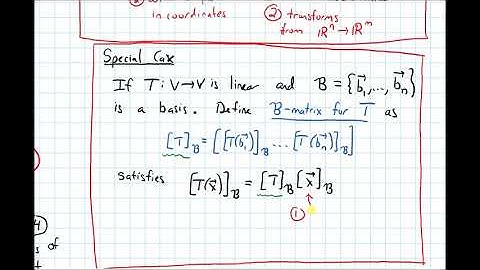 in coordinates
② transforms
from ℝⁿ → ℝᵐ
Special Case
If T: V→V is linear and B = {b⃗₁, ..., b⃗ₙ}
is a basis. Define B-matrix for T as
[T]_B = [[T(b⃗₁)]_B ... [T(b⃗ₙ)]_B]
satisfies [T(x⃗)]_B = [T]_B [x⃗]_B
↑
①
4
s of